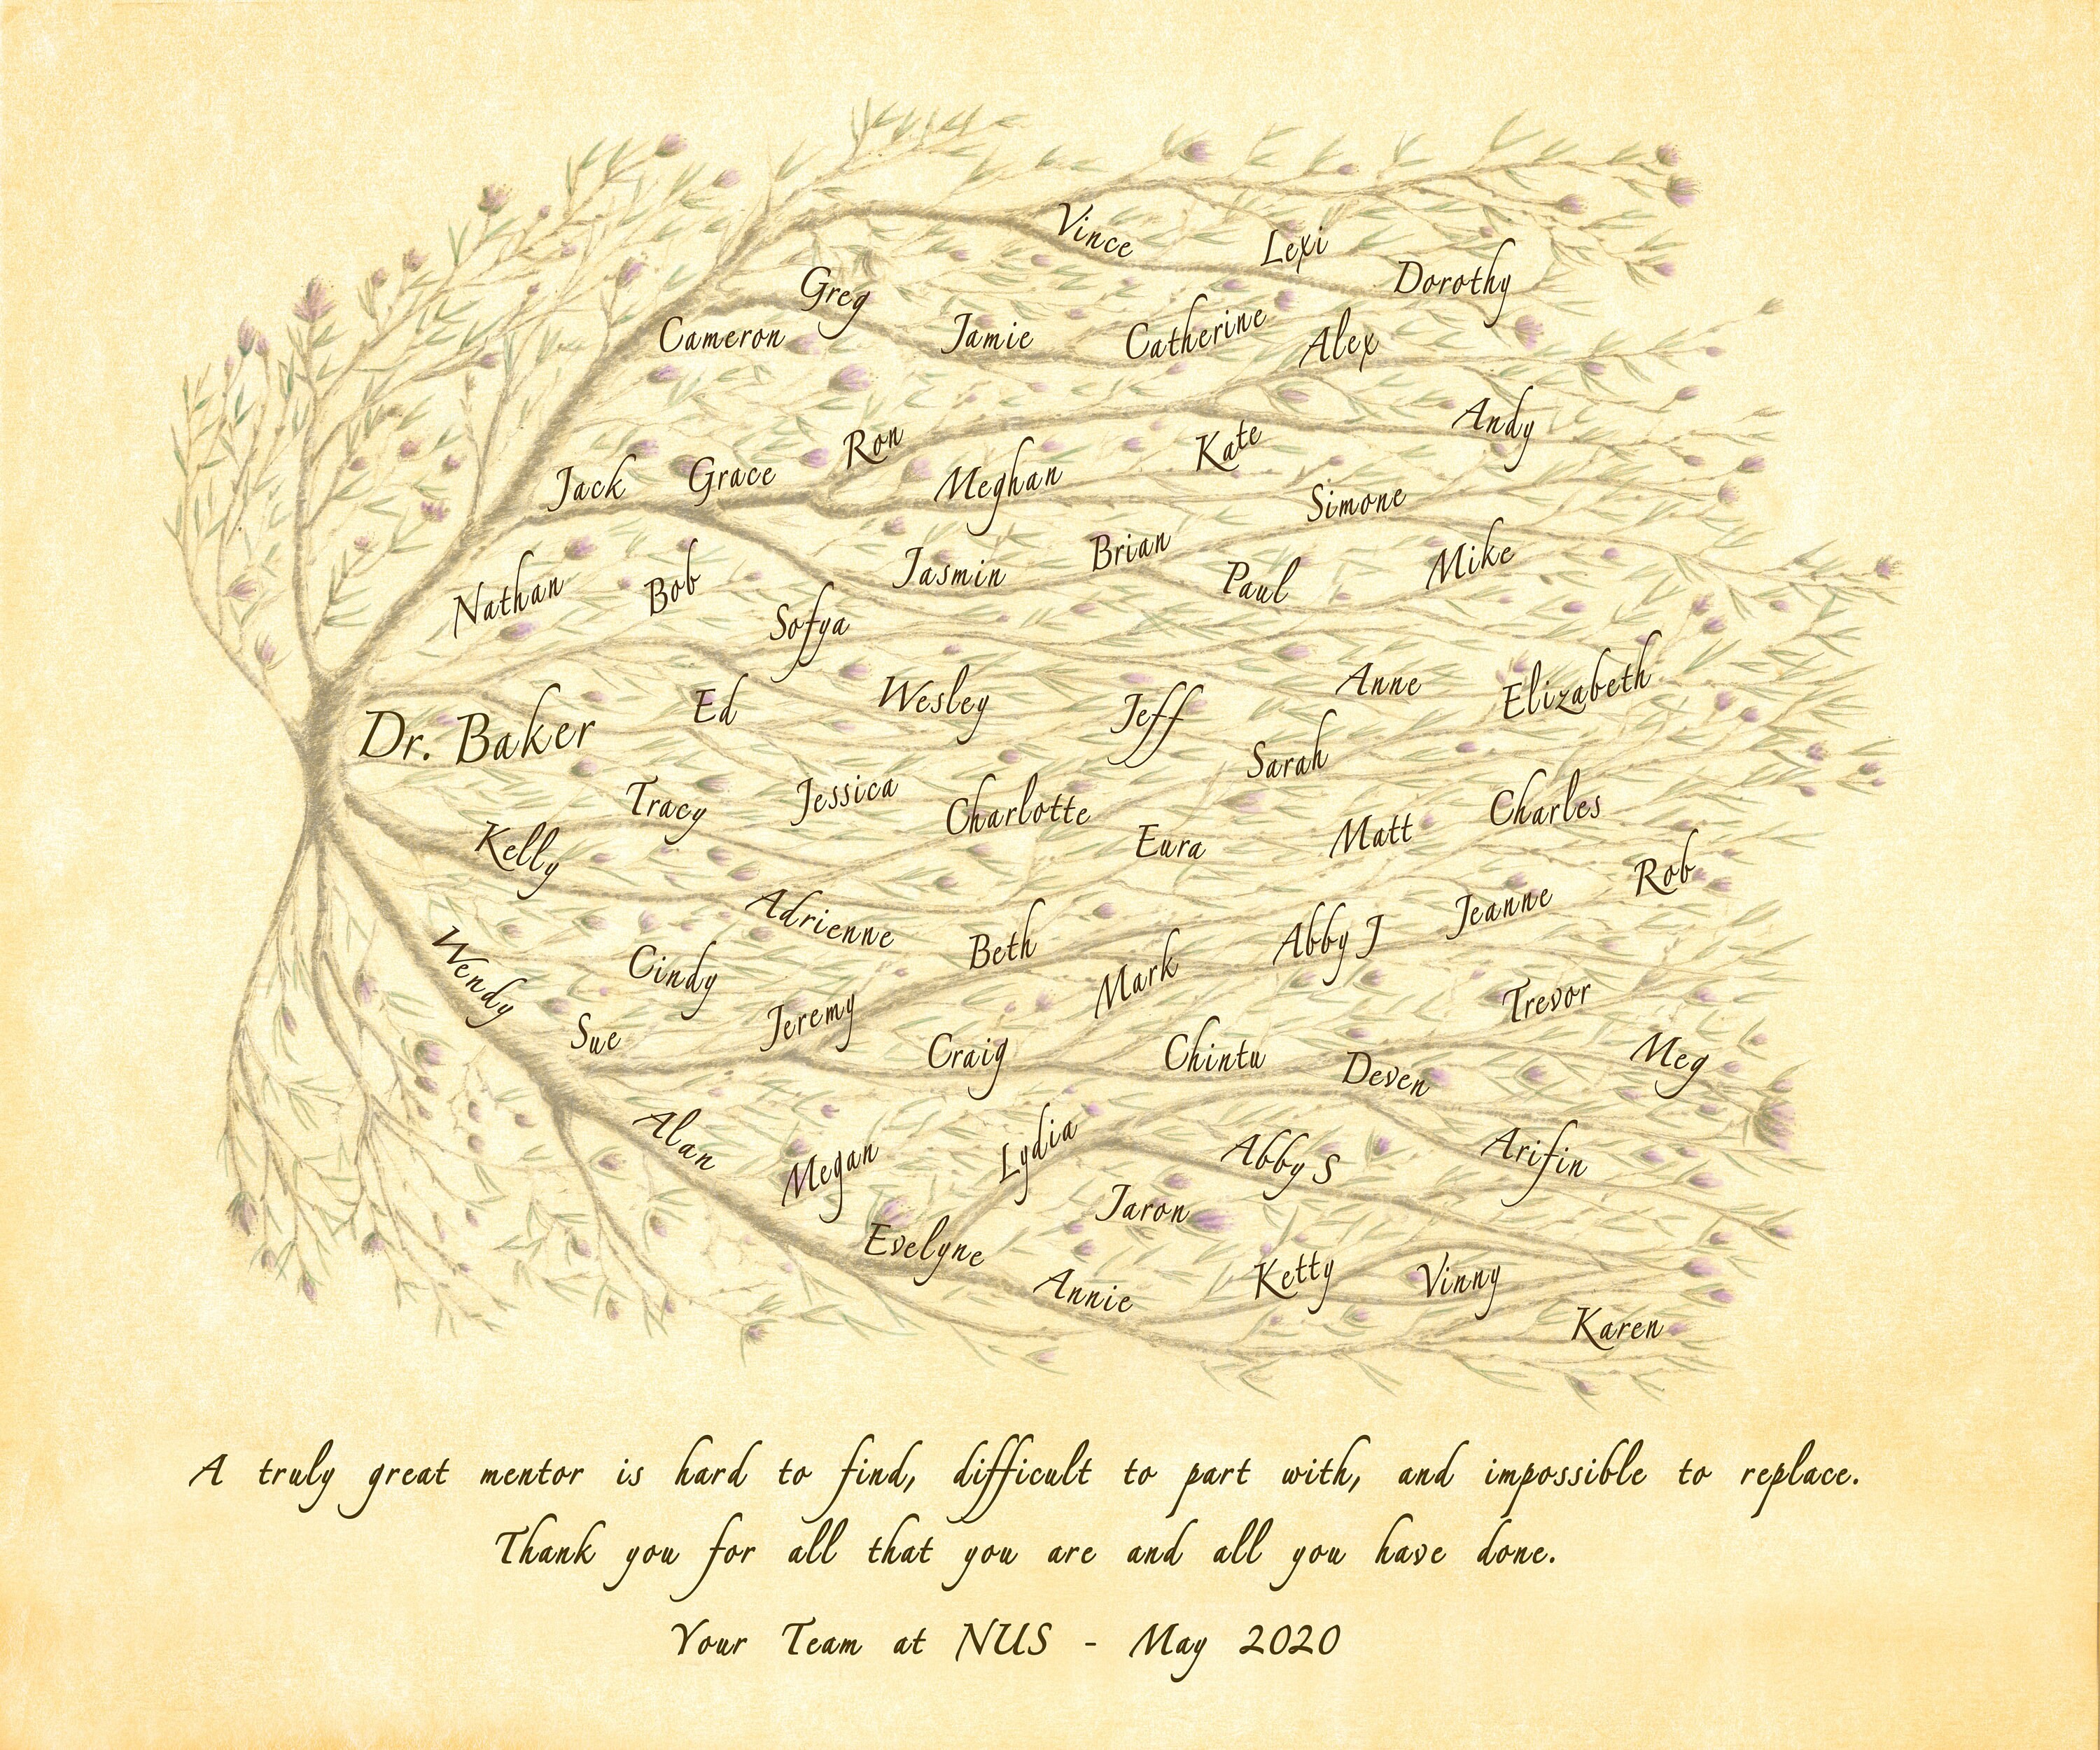 Vince
Lexi
Dorothy
Greg
Cameron
Jamie
Catherine
Alex
Andy
Ron
Kate
Jack
Grace
Meghan
Simone
Nathan
Bob
Jasmin
Brian
Paul
Mike
Sofya
Dr. Baker
Ed
Wesley
Jeff
Anne
Elizabeth
Sarah
Tracy
Jessica
Charlotte
Charles
Kelly
Eura
Matt
Rob
Adrienne
Beth
Abby J
Jeanne
Wendy
Cindy
Mark
Sue
Jeremy
Trevor
Craig
Chintu
Deven
Meg
Alan
Megan
Lydia
Abby S
Arifin
Jaron
Evelyne
Annie
Ketty
Vinny
Karen
A truly great mentor is hard to find, difficult to part with, and impossible to replace.
Thank you for all that you are and all you have done.
Your Team at NUS - May 2020